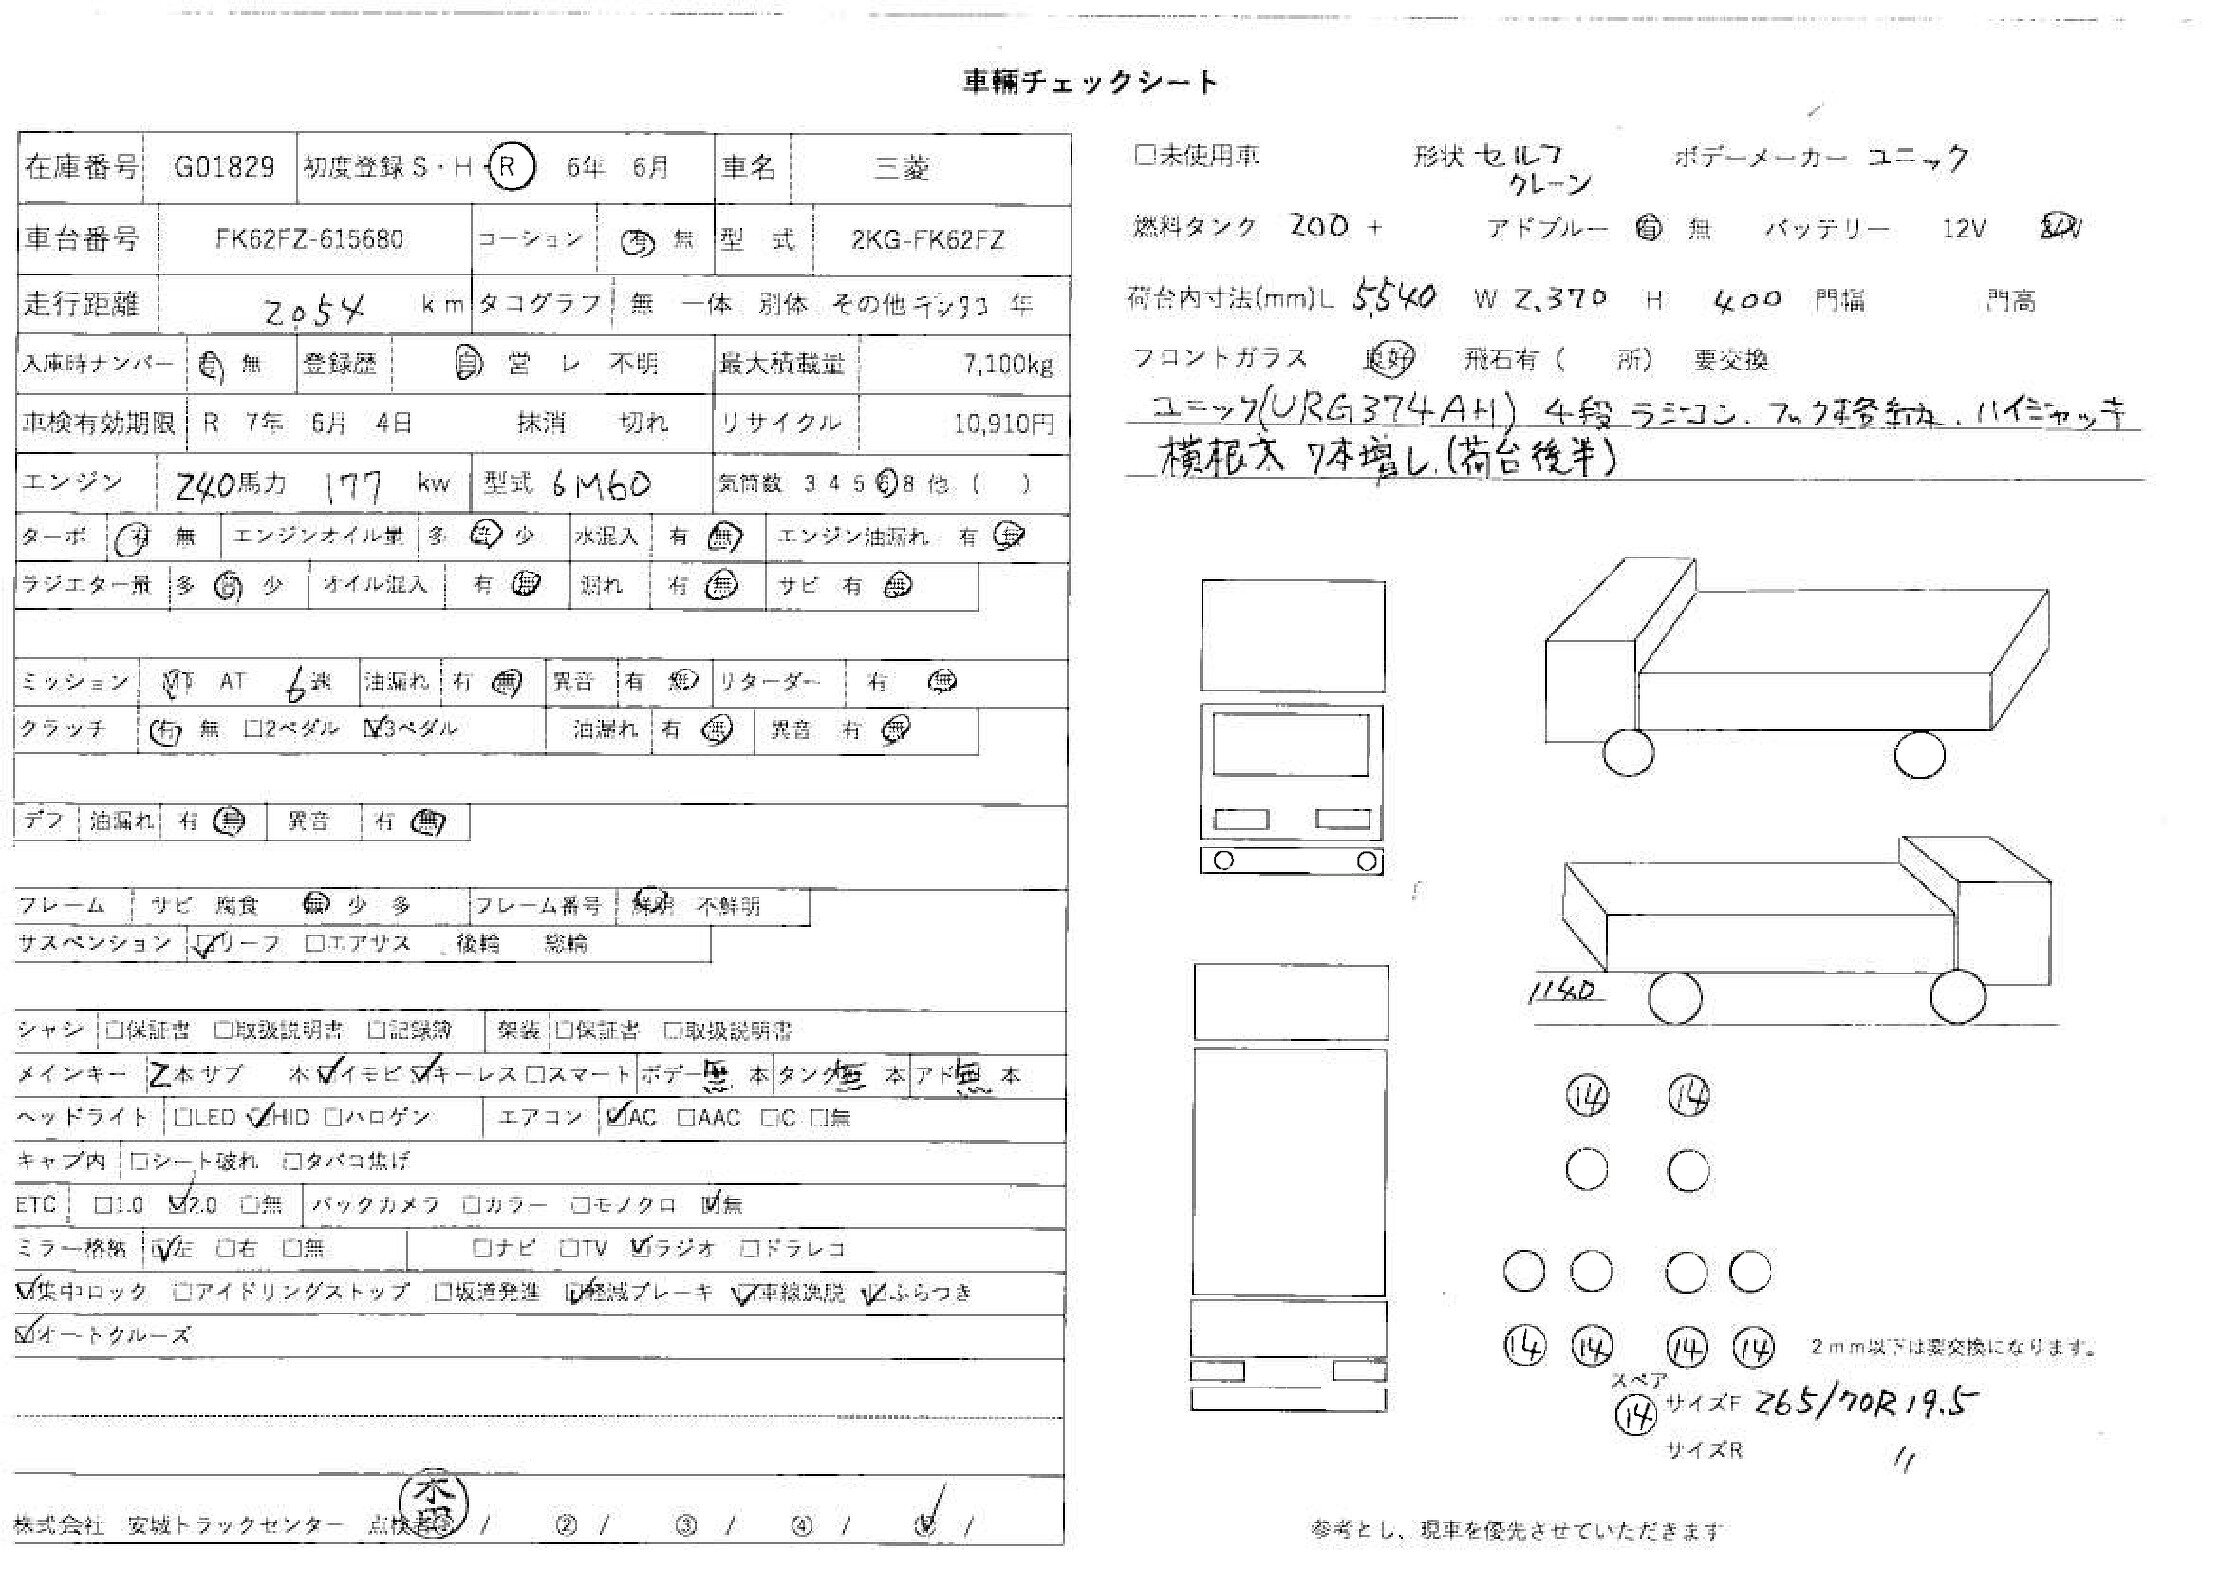 車輌チェックシート
在庫番号 G01829 初度登録 S・H・R 6年 6月 車名 三菱
車台番号 FK62FZ-615680 コーション 有 無 型 式 2KG-FK62FZ
走行距離 2,054 km タコグラフ 無 一体 別体 その他 デジタコ 年
入庫時ナンバー 有 無 登録歴 自 営 レ 不明 最大積載量 7,100kg
車検有効期限 R 7年 6月 4日 抹消 切れ リサイクル 10,910円
エンジン 240馬力 177 kw 型式 6M60 気筒数 3 4 5 6 8 他 ( )
ターボ 有 無 エンジンオイル量 多 適 少 水混入 有 無 エンジン油漏れ 有 無
ラジエター量 多 適 少 オイル混入 有 無 漏れ 有 無 サビ 有 無
ミッション MT AT 6速 油漏れ 有 無 異音 有 無 リターダー 有 無
クラッチ 有 無 □2ペダル ☑3ペダル 油漏れ 有 無 異音 有 無
デフ 油漏れ 有 無 異音 有 無
フレーム サビ 腐食 無 少 多 フレーム番号 鮮明 不鮮明
サスペンション ☑リーフ □エアサス 後輪 総輪
シャシ □保証書 □取扱説明書 □記録簿 架装 □保証書 □取扱説明書
メインキー 2本 サブ 本 ☑イモビ ☑キーレス □スマート ボデー 無 本 タンク 無 本 アド 無 本
ヘッドライト □LED ☑HID □ハロゲン エアコン ☑AC □AAC □C □無
キャブ内 □シート破れ □タバコ焦げ
ETC □1.0 ☑2.0 □無 バックカメラ □カラー □モノクロ ☑無
ミラー格納 ☑左 □右 □無 □ナビ □TV ☑ラジオ □ドラレコ
☑集中ロック □アイドリングストップ □坂道発進 ☑軽減ブレーキ ☑車線逸脱 ☑ふらつき
☑オートクルーズ
株式会社 安城トラックセンター 点検者① / ② / ③ / ④ / ⑤ /
□未使用車 形状 セルフ クレーン ボデーメーカー ユニック
燃料タンク 200 + アドブルー 有 無 バッテリー 12V 24V
荷台内寸法(mm)L 5,540 W 2,370 H 400 門幅 門高
フロントガラス 良好 飛石有 ( 所) 要交換
ユニック(URG374AH) 4段 ラジコン、フック格納、ハイジャッキ
横根太 7本増し(荷台後半)
1140
14 14
14 14 14 14 2mm以下は要交換になります。
スペア
14 サイズF 265/70R19.5
サイズR 〃
参考とし、現車を優先させていただきます